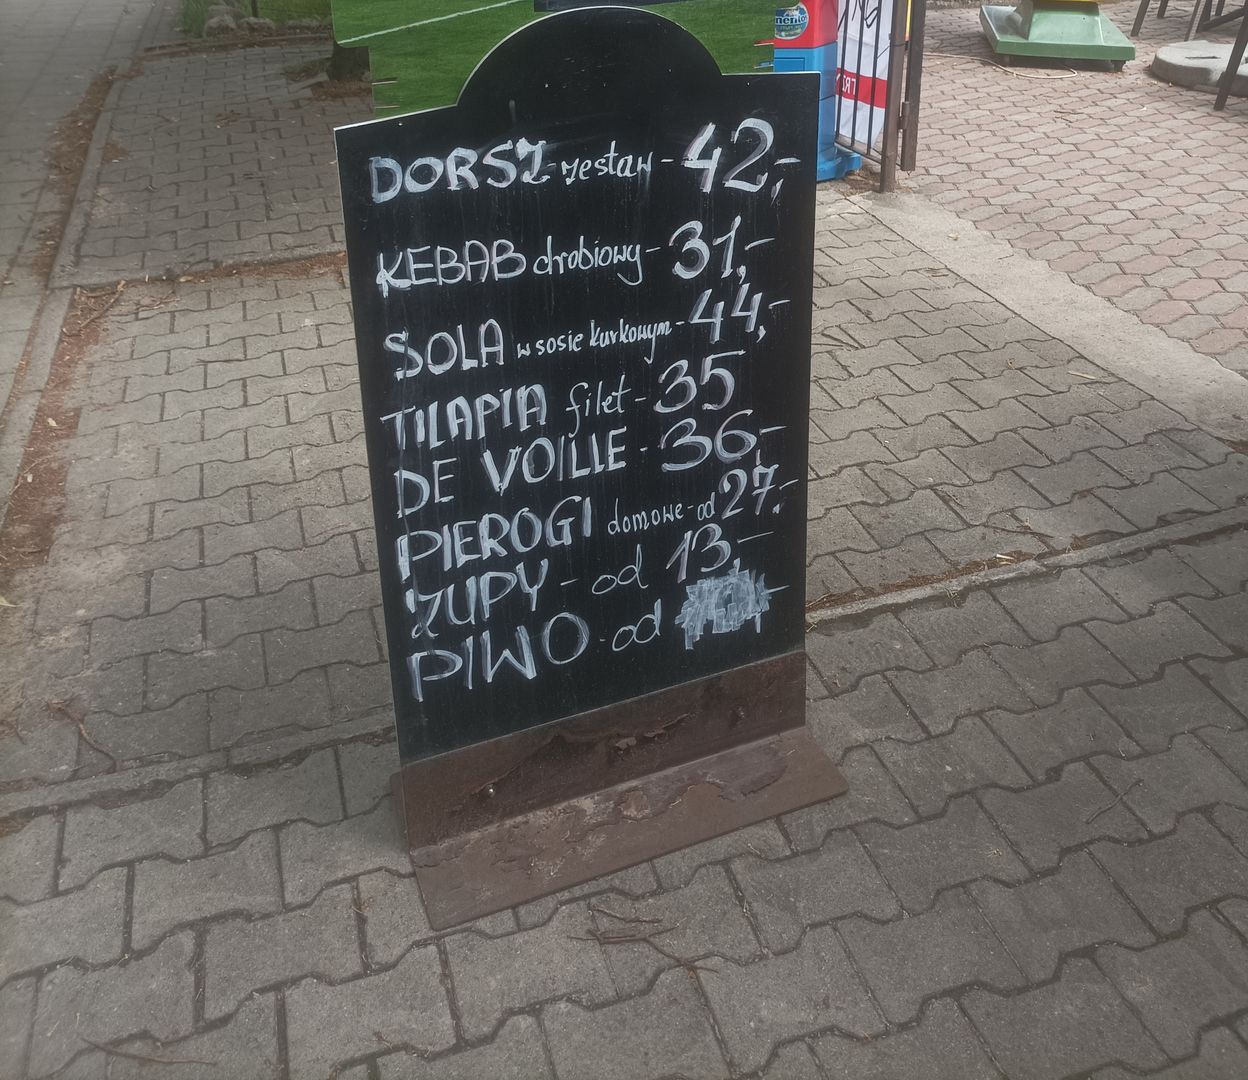 mentos
DORSZ-zestaw-42,-
KEBAB drobiowy-31,-
SOLA w sosie kurkowym-44,-
TILAPIA filet-35
DE VOILLE-36,-
PIEROGI domowe-od 27,-
ZUPY-od 13,-
PIWO-od